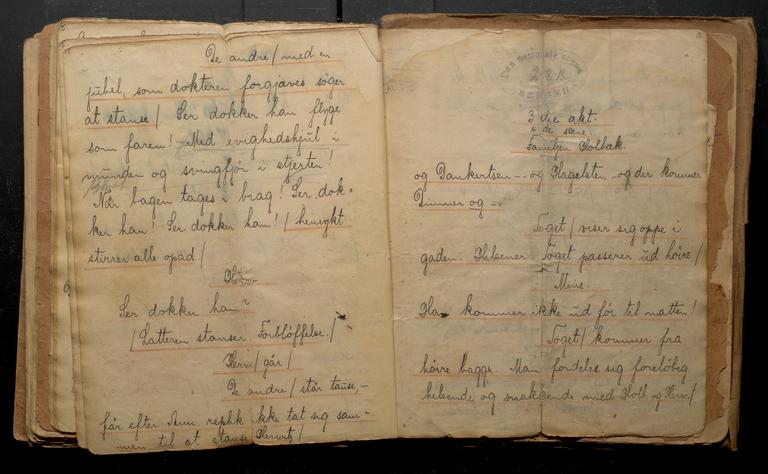 De andre / med en
jubel, som dokteren forgjæves søger
at stanse / Ser dokker han flyge
som faren! Med evighedshjul i
munden og svingfjør i stjerten!
Når bagen tages i brag! Ser dok-
ker han! Ser dokker han! / henrykt
stirrer alle opad /
Ser dokker han?
/ Latteren stanser Forbløffelse. /
Herw / går /
De andre / står tause, -
før efter replik ikke tat sig sam-
men til at stanse Herwitz /
Den nationale scene
BERGEN
3 die akt.
4 de scene.
Familjen Holbæk.
og Dankertsen -- og Hagelsten og der kommer
Dinner og --
Toget / viser sig oppe i
gaden. Hilsener. Toget passerer ud høire /
Mine.
Han kommer ikke ud før til natten!
Toget / kommer fra
høire bagge. Man fordeles sig foreløbig
hilsende og snakkende med Holb og Herw. /